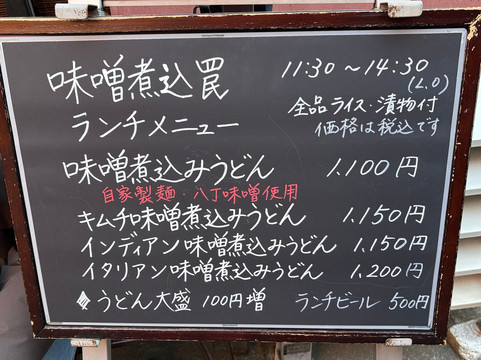 味噌煮込罠 11:30〜14:30
(L.O)
ランチメニュー 全品ライス・漬物付
価格は税込です
味噌煮込みうどん 1.100円
自家製麺・八丁味噌使用
キムチ味噌煮込みうどん 1.150円
インディアン味噌煮込みうどん 1.150円
イタリアン味噌煮込みうどん 1.200円
うどん大盛 100円増 ランチビール 500円